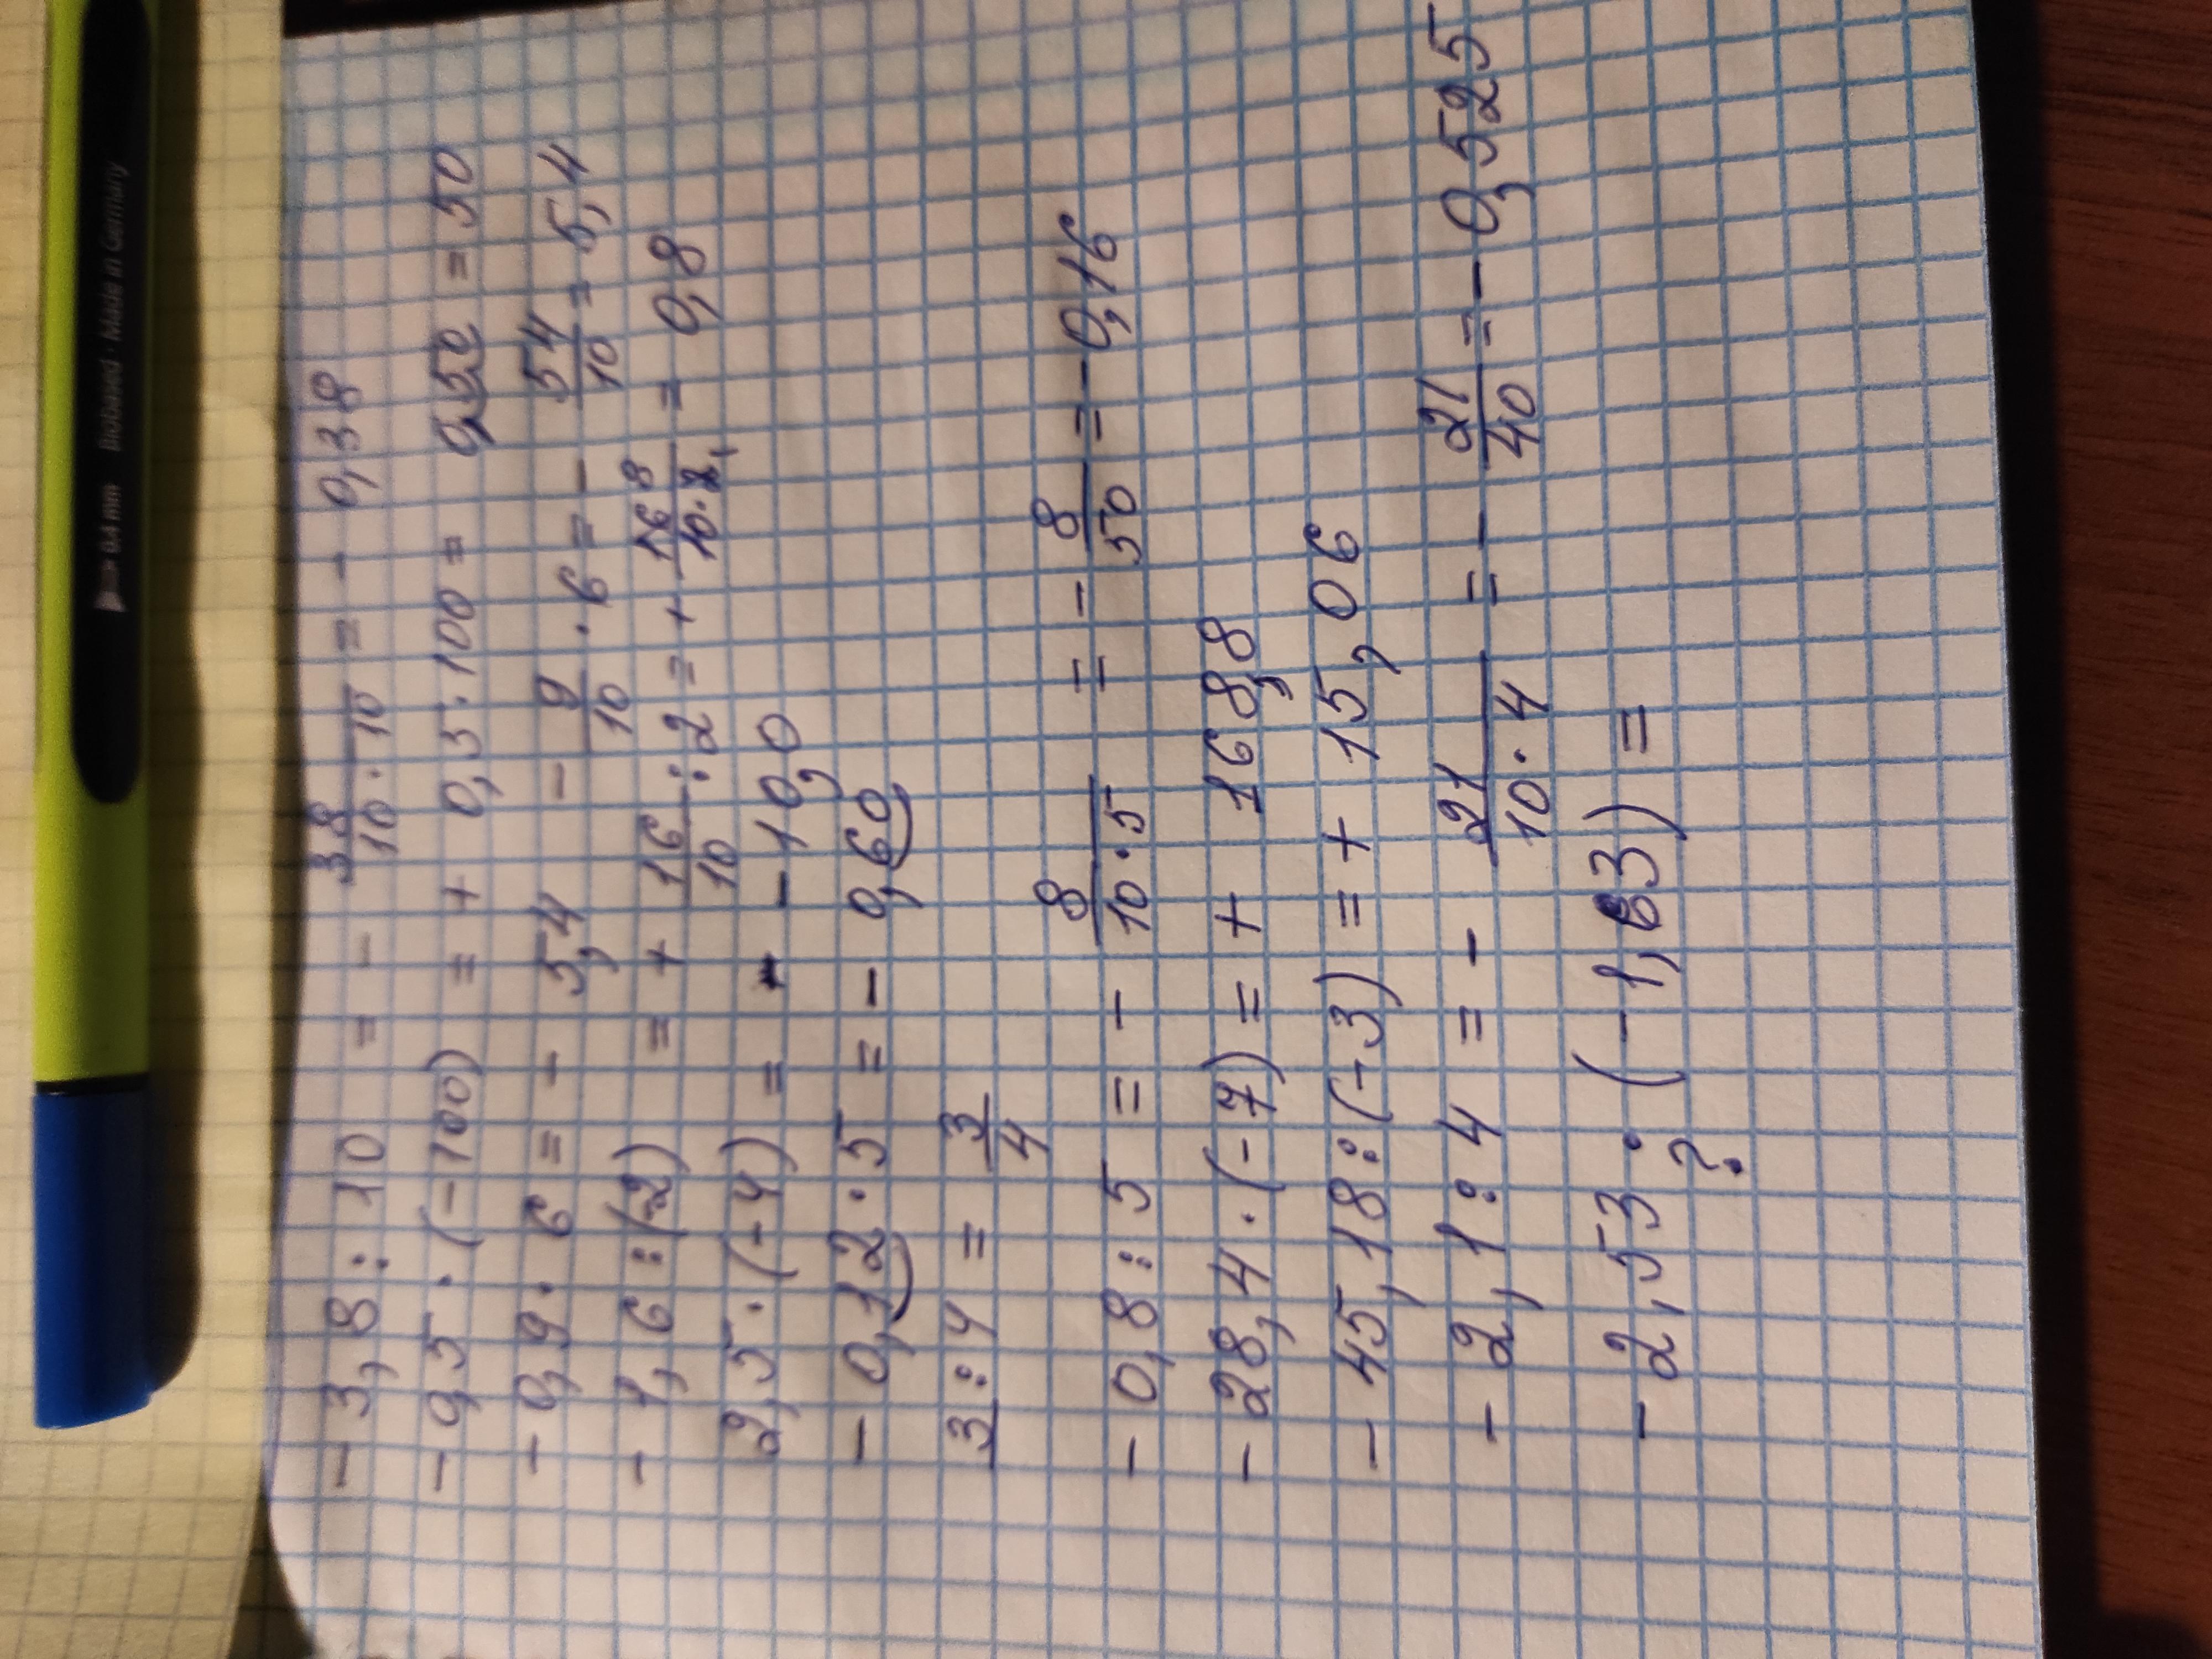 0.4 mm Biobased · Made in Germany
- 3,8 : 10 = - 38/10 · 10 = - 0,38
- 0,5 · (-100) = + 0,5 · 100 = 0,50 = 50
- 0,9 · 6 = - 5,4 - 9/10 · 6 = - 54/10 = 5,4
- 1,6 : (-2) = + 16/10 : 2 = + 16 8/10 · 2 1 = 0,8
2,5 · (-4) = - 10,0
- 0,12 · 5 = - 0,60
3 : 4 = 3/4
- 0,8 : 5 = - 8/10 · 5 = - 8/50 = - 0,16
- 28,4 · (-7) = + 168,8
- 45,18 : (-3) = + 15,06
- 2,1 : 4 = - 21/10 · 4 = - 21/40 = - 0,525
- 2,53 · (-1,63) =
?